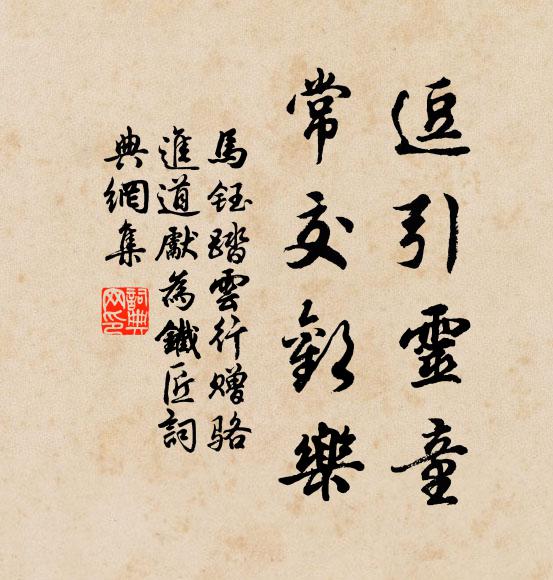 逗引靈童
常交歡樂
馬鈺踏雲行贈骆
進道獻為鐵匠詞
典網集
詞典
网印